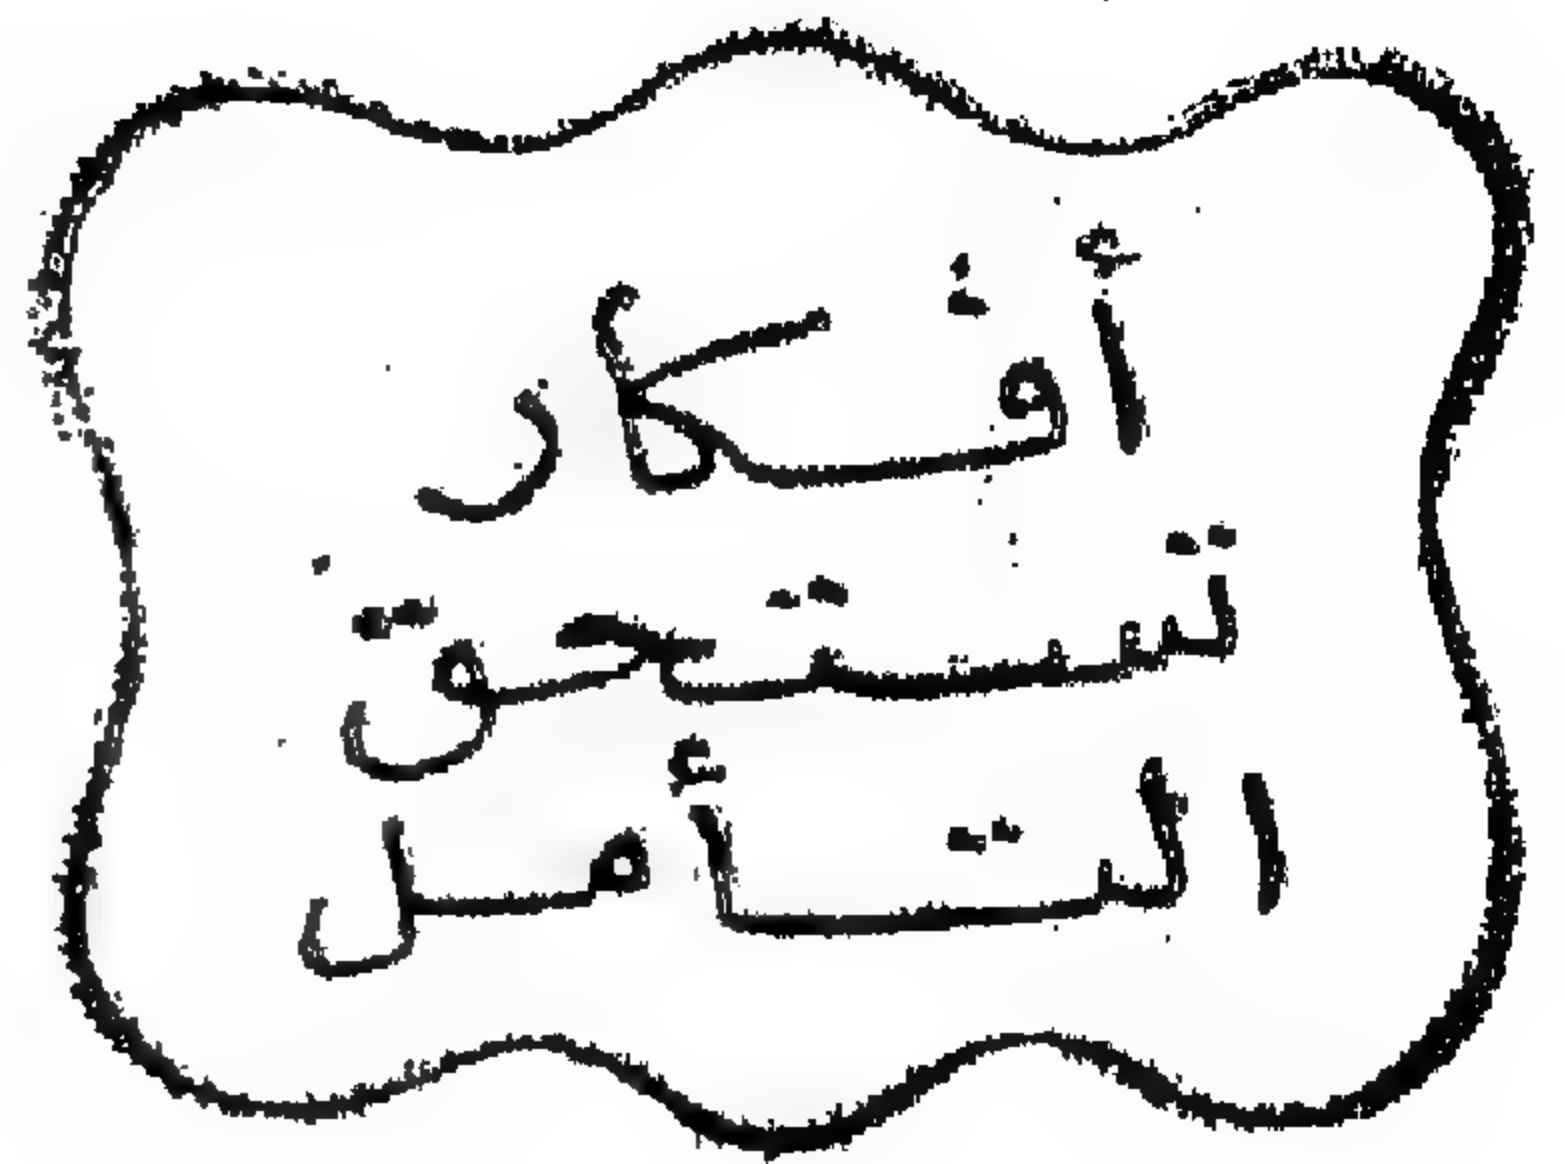 أفكار
تستحق
التأمل